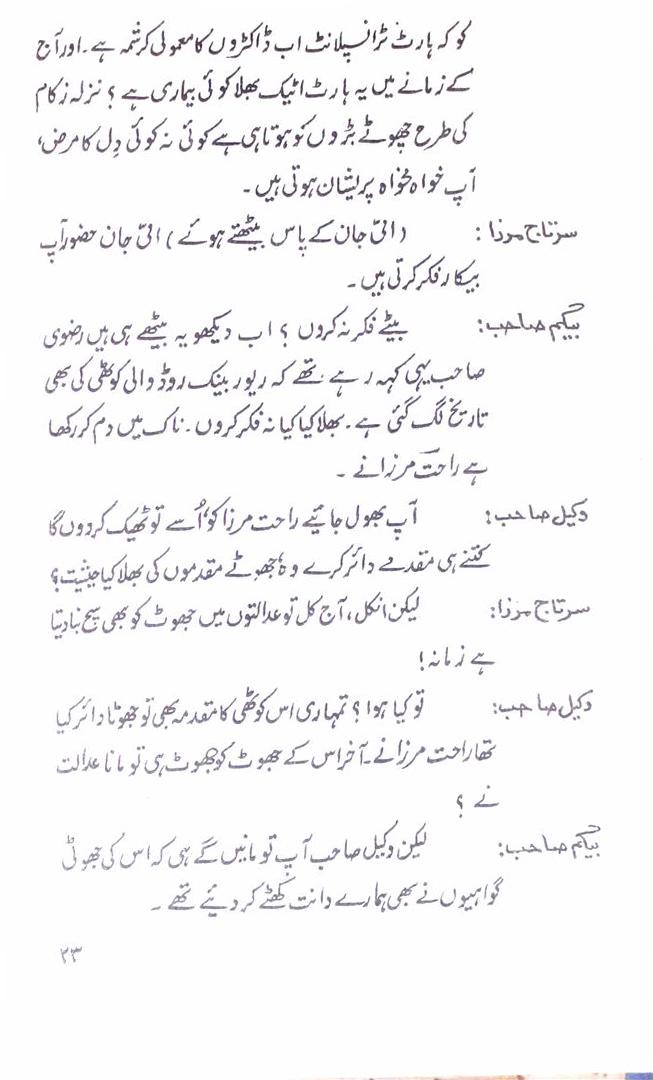 کو کہ ہارٹ ٹرانسپلانٹ اب ڈاکٹروں کا معمولی کرشمہ ہے۔ اور آج
کے زمانے میں یہ ہارٹ اٹیک بھلا کوئی بیماری ہے ؟ نزلہ زکام
کی طرح چھوٹے بڑوں کو ہوتا ہی ہے کوئی نہ کوئی دِل کا مرض،
آپ خواہ مخواہ پریشان ہوتی ہیں۔
سرتاج مرزا : (امّی جان کے پاس بیٹھتے ہوئے) امّی جان حضور آپ
بیکار فکر کرتی ہیں۔
بیگم صاحب: بیٹے فکر نہ کروں ؟ اب دیکھو یہ بیٹھے ہی ہیں رضوی
صاحب یہی کہہ رہے تھے کہ ریور بینک روڈ والی کوٹھی کی بھی
تاریخ لگ گئی ہے۔ بھلا کیا کیا نہ فکر کروں۔ ناک میں دم کر رکھا
ہے راحت مرزا نے ۔
وکیل صاحب: آپ بھول جائیے راحت مرزا کو، اُسے تو ٹھیک کر دوں گا
کتنے ہی مقدمے دائر کرے وہ، جھوٹے مقدموں کی بھلا کیا حیثیت؟
سرتاج مرزا: لیکن انکل، آج کل تو عدالتوں میں جھوٹ کو بھی سچ بنا دیتا
ہے زمانہ!
وکیل صاحب: تو کیا ہوا ؟ تمہاری اس کوٹھی کا مقدمہ بھی تو جھوٹا دائر کیا
تھا راحت مرزا نے۔ آخر اس کے جھوٹ کو جھوٹ ہی تو مانا عدالت
نے ؟
بیگم صاحب: لیکن وکیل صاحب آپ تو مانیں گے ہی کہ اس کی جھوٹی
گواہیوں نے بھی ہمارے دانت کھٹے کر دیئے تھے ۔
۲۳